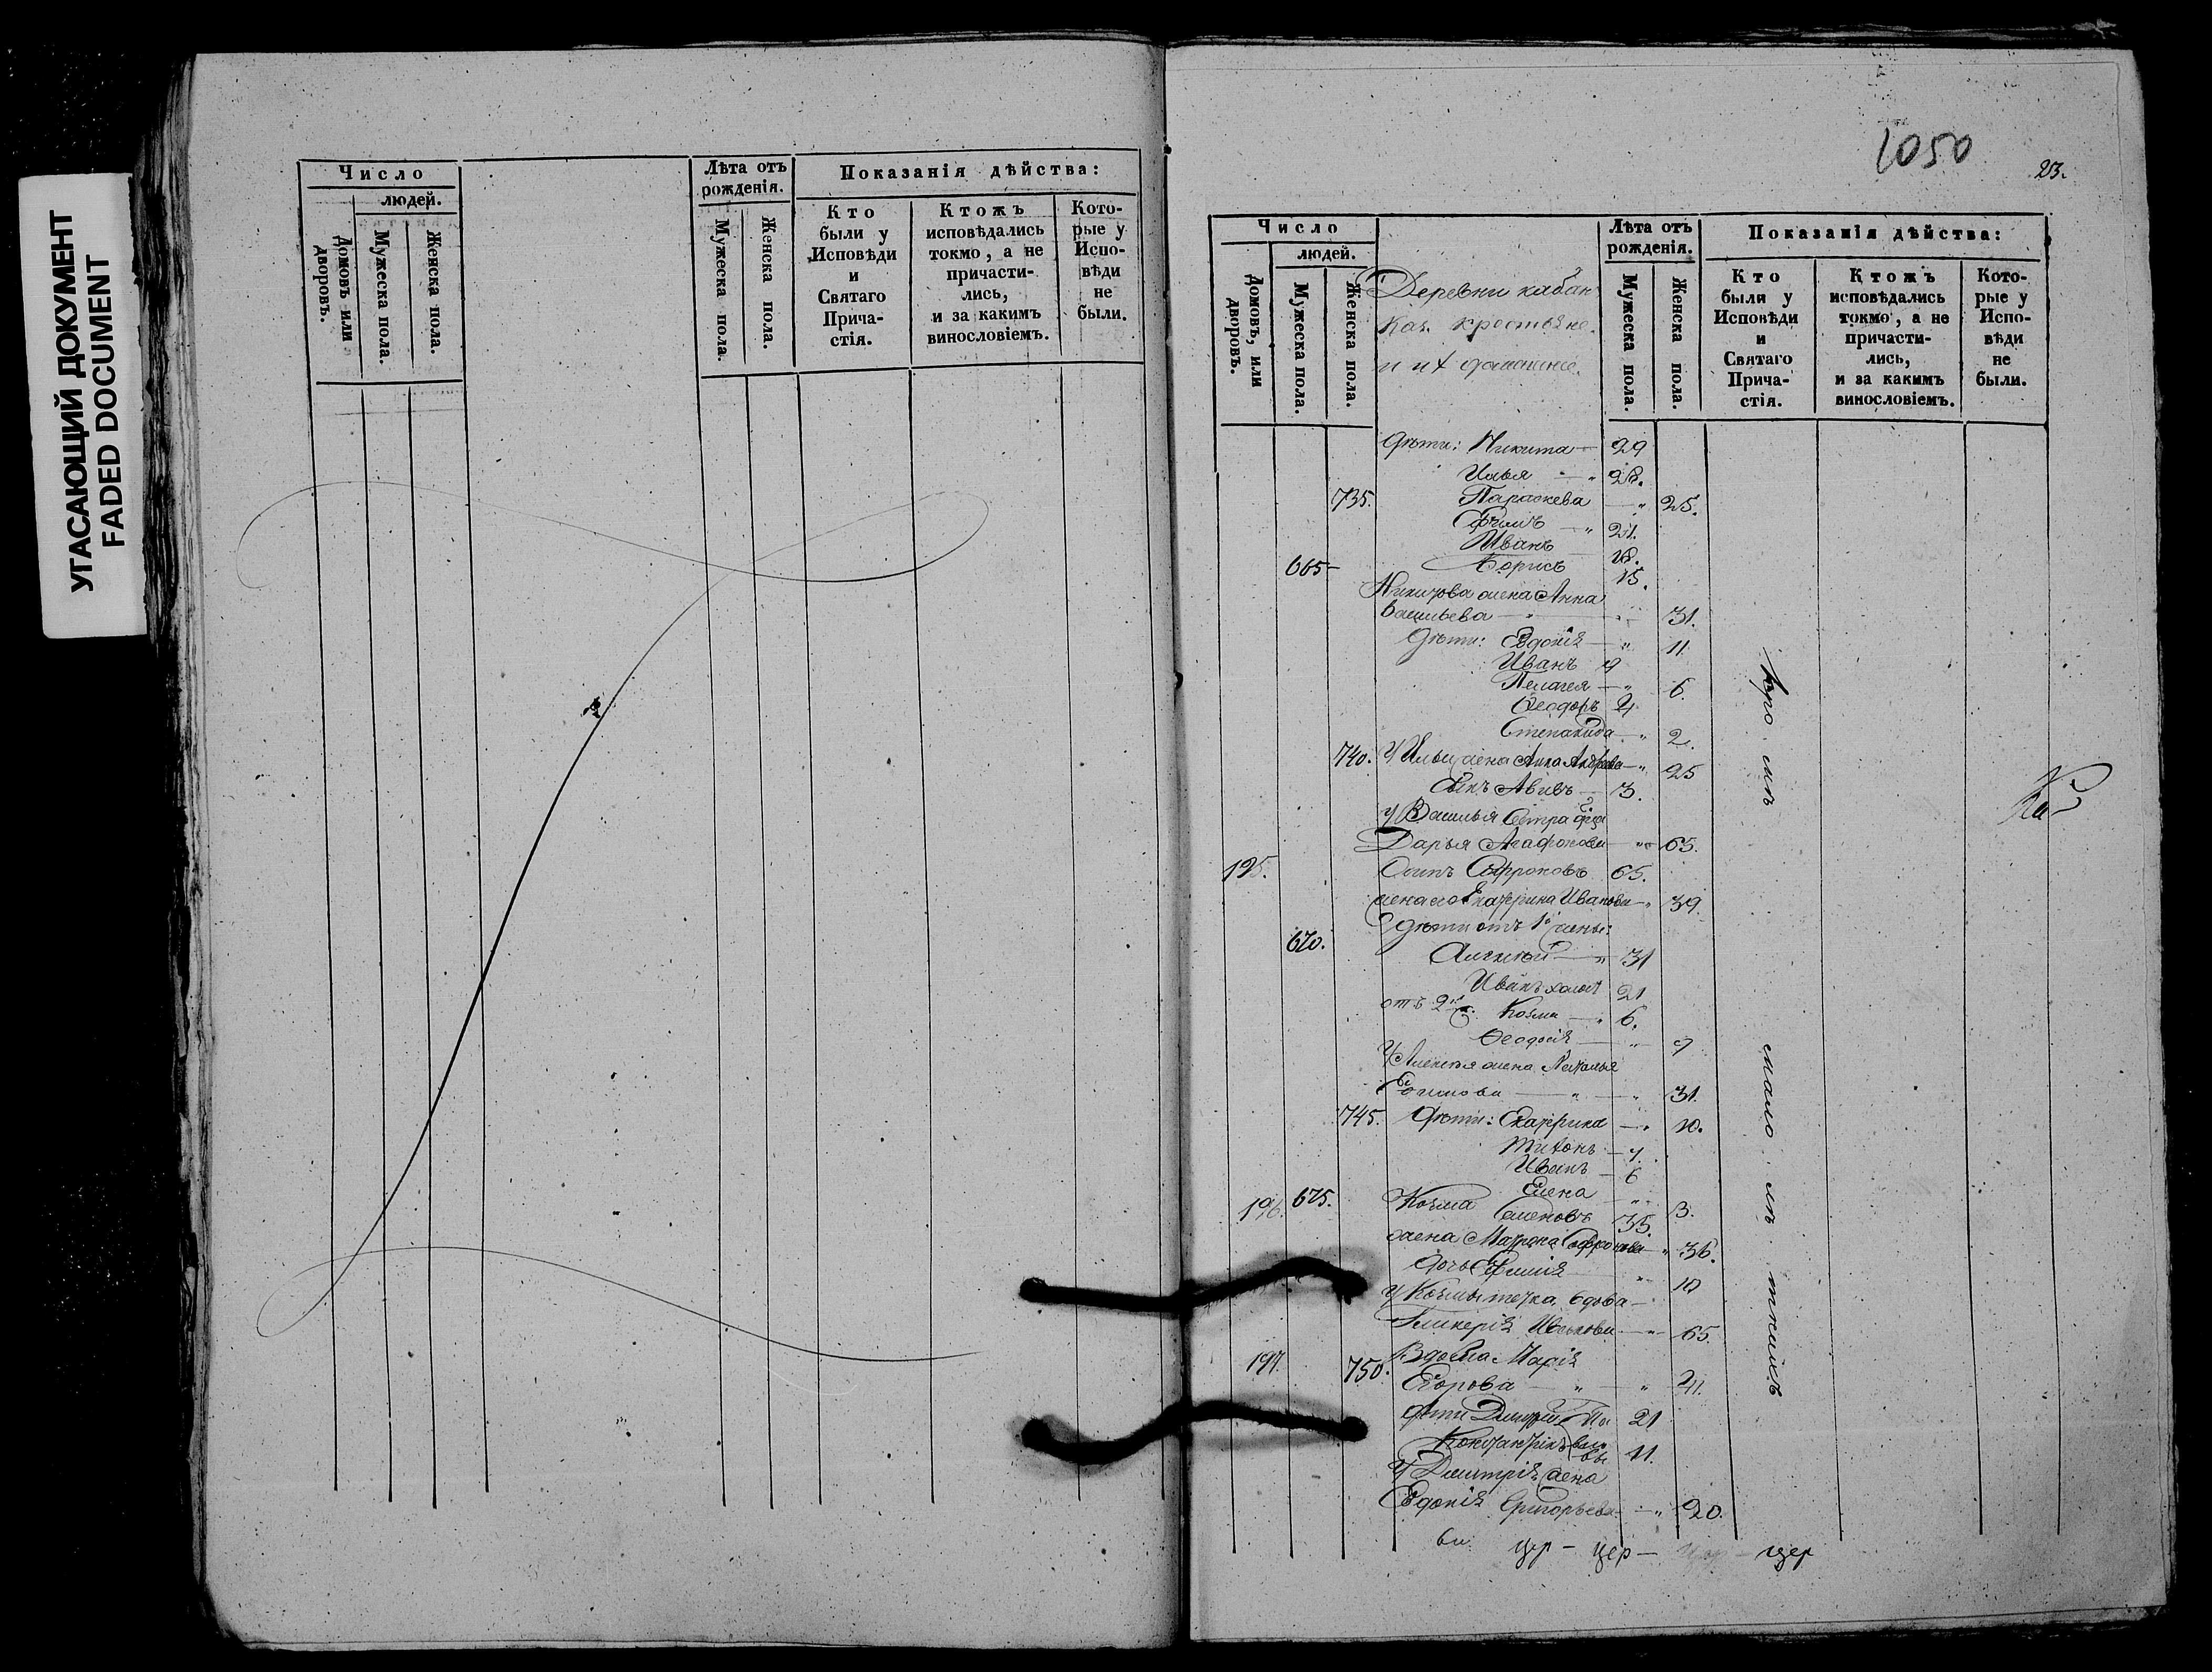 УГАСАЮЩИЙ ДОКУМЕНТ
FADED DOCUMENT
Число
людей.
Домовъ или дворовъ.
Мужеска пола.
Женска пола.
Лѣта отъ рожденія.
Мужеска пола.
Женска пола.
Показанія дѣйства:
Кто
были у
Исповѣди
и
Святаго
Прича-
стія.
Ктожъ
исповѣдались
токмо, а не
причасти-
лись,
и за какимъ
винословіемъ.
Кото-
рые у
Испо-
вѣди
не
были.
1050
23.
Число
людей.
Домовъ, или дворовъ.
Мужеска пола.
Женска пола.
Деревни кабан
Каз. крестьяне
и их домашніе.
Лѣта отъ
рожденія.
Мужеска пола.
Женска пола.
Показанія дѣйства:
Кто
были у
Исповѣди
и
Святаго
Прича-
стія.
Ктожъ
исповѣдались
токмо, а не
причасти-
лись,
и за какимъ
винословіемъ.
Кото-
рые у
Испо-
вѣди
не
были.
Дѣти: Никита 29
Илья 28.
735. Параскева 25.
Ефимъ 21.
Иванъ 18.
665 Борисъ 15.
Никитова жена Анна
Васильева 31.
Дѣти: Евдокія 11
Иванъ 9
Пелагея 6.
Ѳеодоръ 4
Степанида 2.
740. У Ильи жена Анна Андреева 25
Сынъ Авивъ 3.
у Василья Сестра
Дарья Агафонова 65.
195. Осипъ Софроновъ 65.
жена его Екатерина Иванова 39.
Дѣти отъ 1й жены:
670. Алексѣй 31
Иванъ холост 21
отъ 2й Козма 6.
Ѳеодосія 9
У Алексѣя жена Наталья
Ефимова 31.
745. Дѣти: Екатерина 10.
Тихонъ 7.
Иванъ 6
Елена 3.
196. 675. Козма Семеновъ 35.
жена Матрона Софронова 36.
дочь Ефимія 10
у Козмы тетка вдова
Гликерія 65.
197. 750. Вдова Марія
Егорова 41.
Дѣти Дмитрій Па 21
Константинъ вло
вы 11.
У Дмитрія жена
Евдокія Григорьева 20.
цер - цер - цер